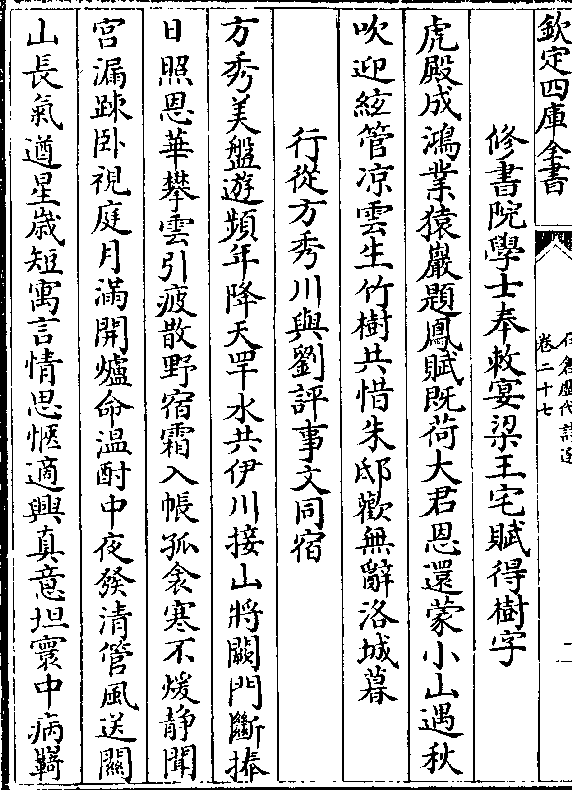 欽定四庫全書
卷二十七
修書院學士奉敕宴梁王宅賦得樹字
虎殿成鴻業猿巖題鳳賦既荷大君恩還蒙小山遇秋
吹迎絃管凉雲生竹樹共惜朱邸歡無辭洛城暮
行從方秀川與劉評事文同宿
方秀美盤遊頻年降天罕水共伊川接山將闕門斷捧
日照恩華攀雲引疲散野宿霜入帳孤衾寒不煖靜聞
宮漏踈卧視庭月滿開爐命温酎中夜發清管風送關
山長氣遒星歲短寓言情思愜適興真意坦寰中病羇